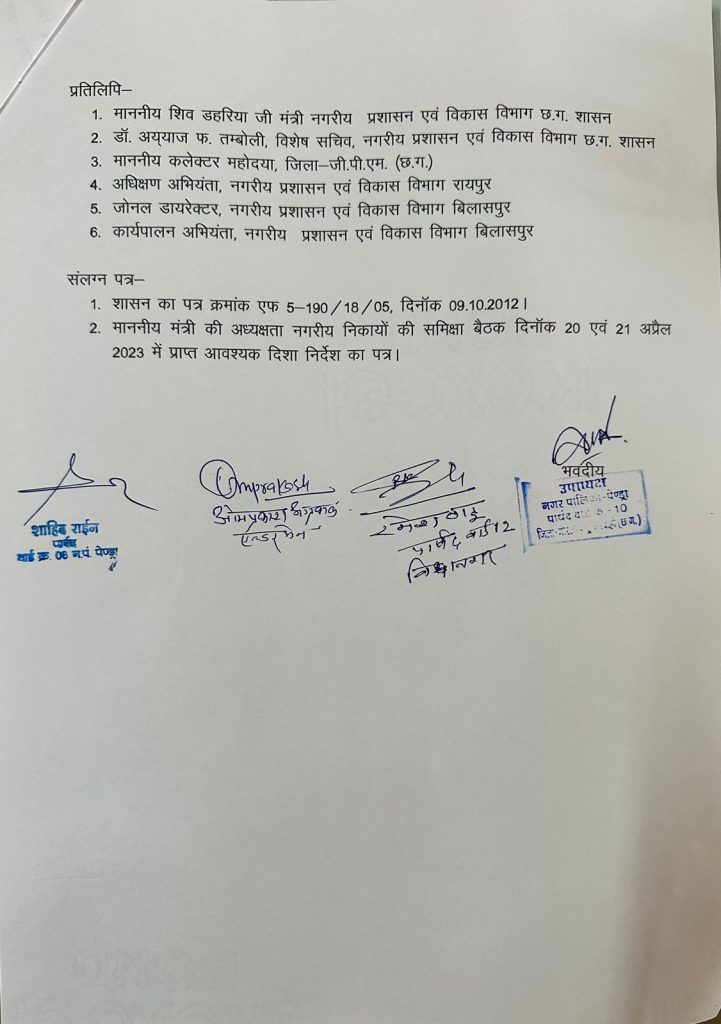 प्रतिलिपि–
1. माननीय शिव डहरिया जी मंत्री नगरीय प्रशासन एवं विकास विभाग छ.ग. शासन
2. डॉ. अय्याज फ. तम्बोली, विशेष सचिव, नगरीय प्रशासन एवं विकास विभाग छ.ग. शासन
3. माननीय कलेक्टर महोदया, जिला–जी.पी.एम. (छ.ग.)
4. अधिक्षण अभियंता, नगरीय प्रशासन एवं विकास विभाग रायपुर
5. जोनल डायरेक्टर, नगरीय प्रशासन एवं विकास विभाग बिलासपुर
6. कार्यपालन अभियंता, नगरीय प्रशासन एवं विकास विभाग बिलासपुर
संलग्न पत्र–
1. शासन का पत्र क्रमांक एफ 5–190/18/05, दिनॉक 09.10.2012।
2. माननीय मंत्री की अध्यक्षता नगरीय निकायों की समिक्षा बैठक दिनॉक 20 एवं 21 अप्रैल
2023 में प्राप्त आवश्यक दिशा निर्देश का पत्र।
शाहिद राईन
पार्षद
वार्ड क्र. 06 न.पं. पेण्ड्रा
Omprakash
ओमप्रकाश
एल्डरमेन
रमेश साहू
पार्षद वार्ड 12
विद्यानगर
भवदीय
उपाध्यक्ष
नगर पालिका पेण्ड्रा
पार्षद वार्ड 10
(छ.ग.)